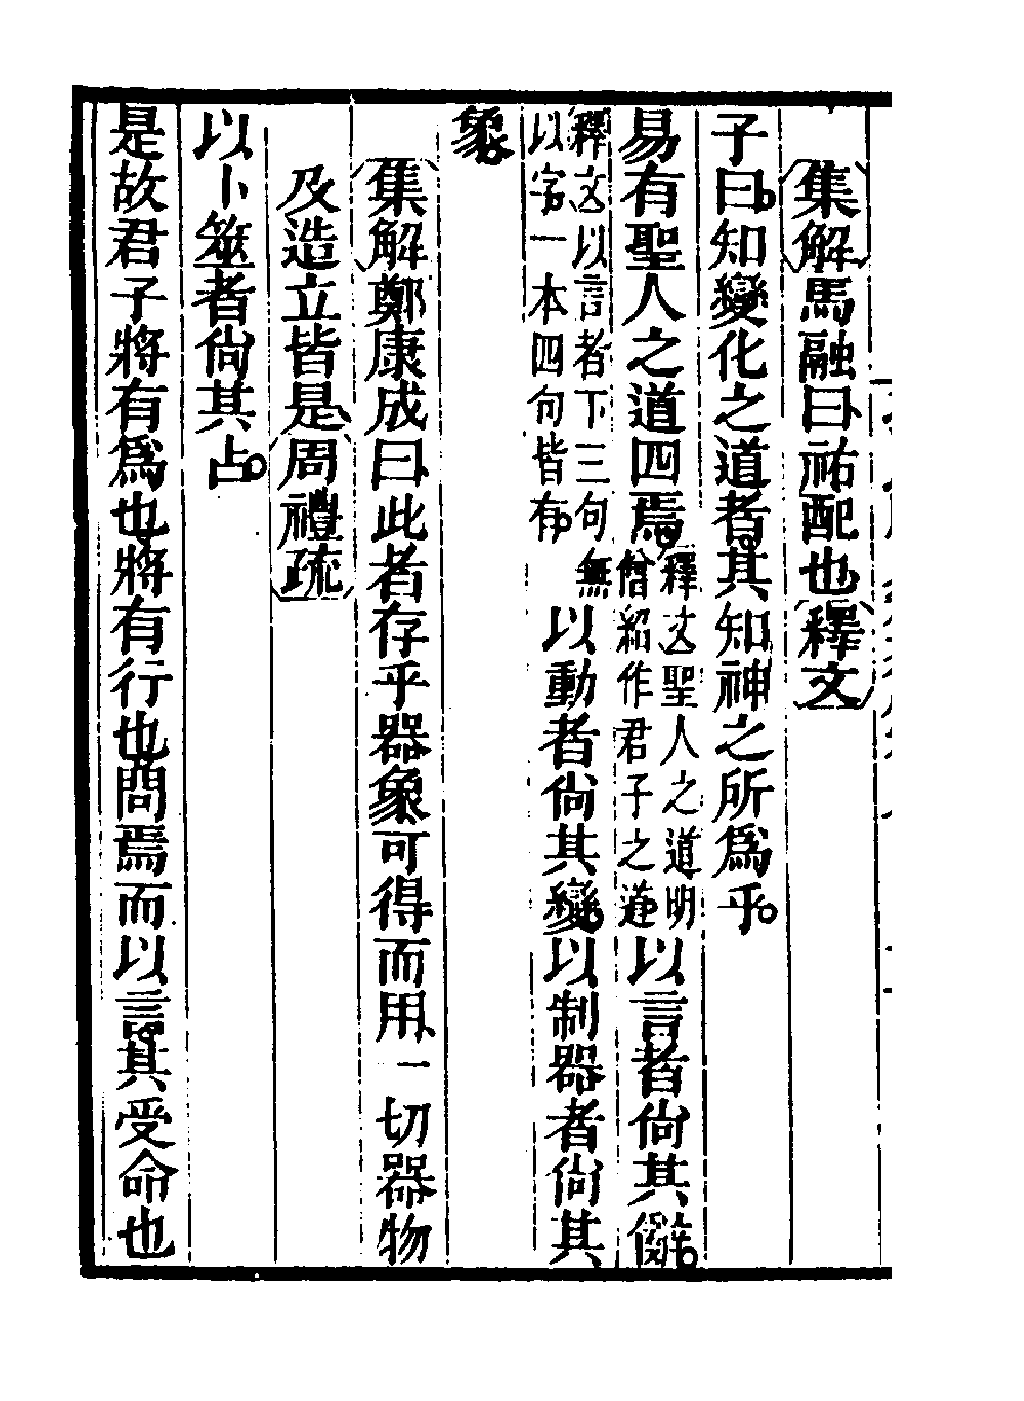 集解馬融曰、祐配也釋文
子曰。知變化之道者。其知神之所爲乎。
易有聖人之道四焉。釋文聖人之道明僧紹作君子之道。以言者尙其辭。
釋文以言者下三句無以字一本四句皆有。以動者尙其變。以制器者尙其
象。
集解鄭康成曰、此者存乎器象可得而用、一切器物
及造立皆是、周禮疏
以卜筮者尙其占。
是故君子將有爲也。將有行也。問焉而以言。其受命也